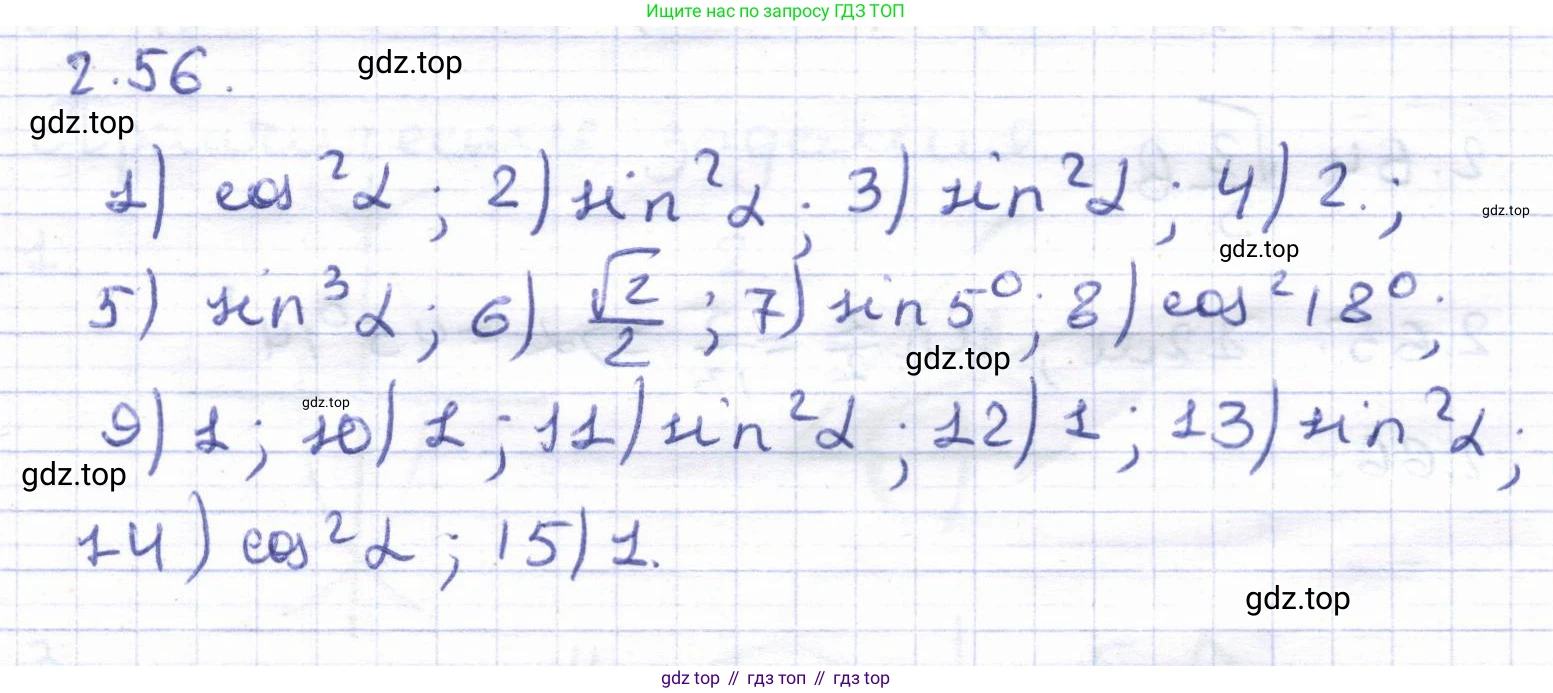 Ищите нас по запросу ГДЗ ТОП
2.56. gdz.top
gdz.top
1) cos²α; 2) sin²α; 3) sin²α; 4) 2.; gdz.top
gdz.top
5) sin³α; 6) √2/2; 7) sin5°; 8) cos²18°;
gdz.top
gdz.top
9) 1; 10) 1; 11) sin²α; 12) 1; 13) sin²α;
gdz.top
14) cos²α; 15) 1.
gdz.top
gdz top // гдз топ // гдз top